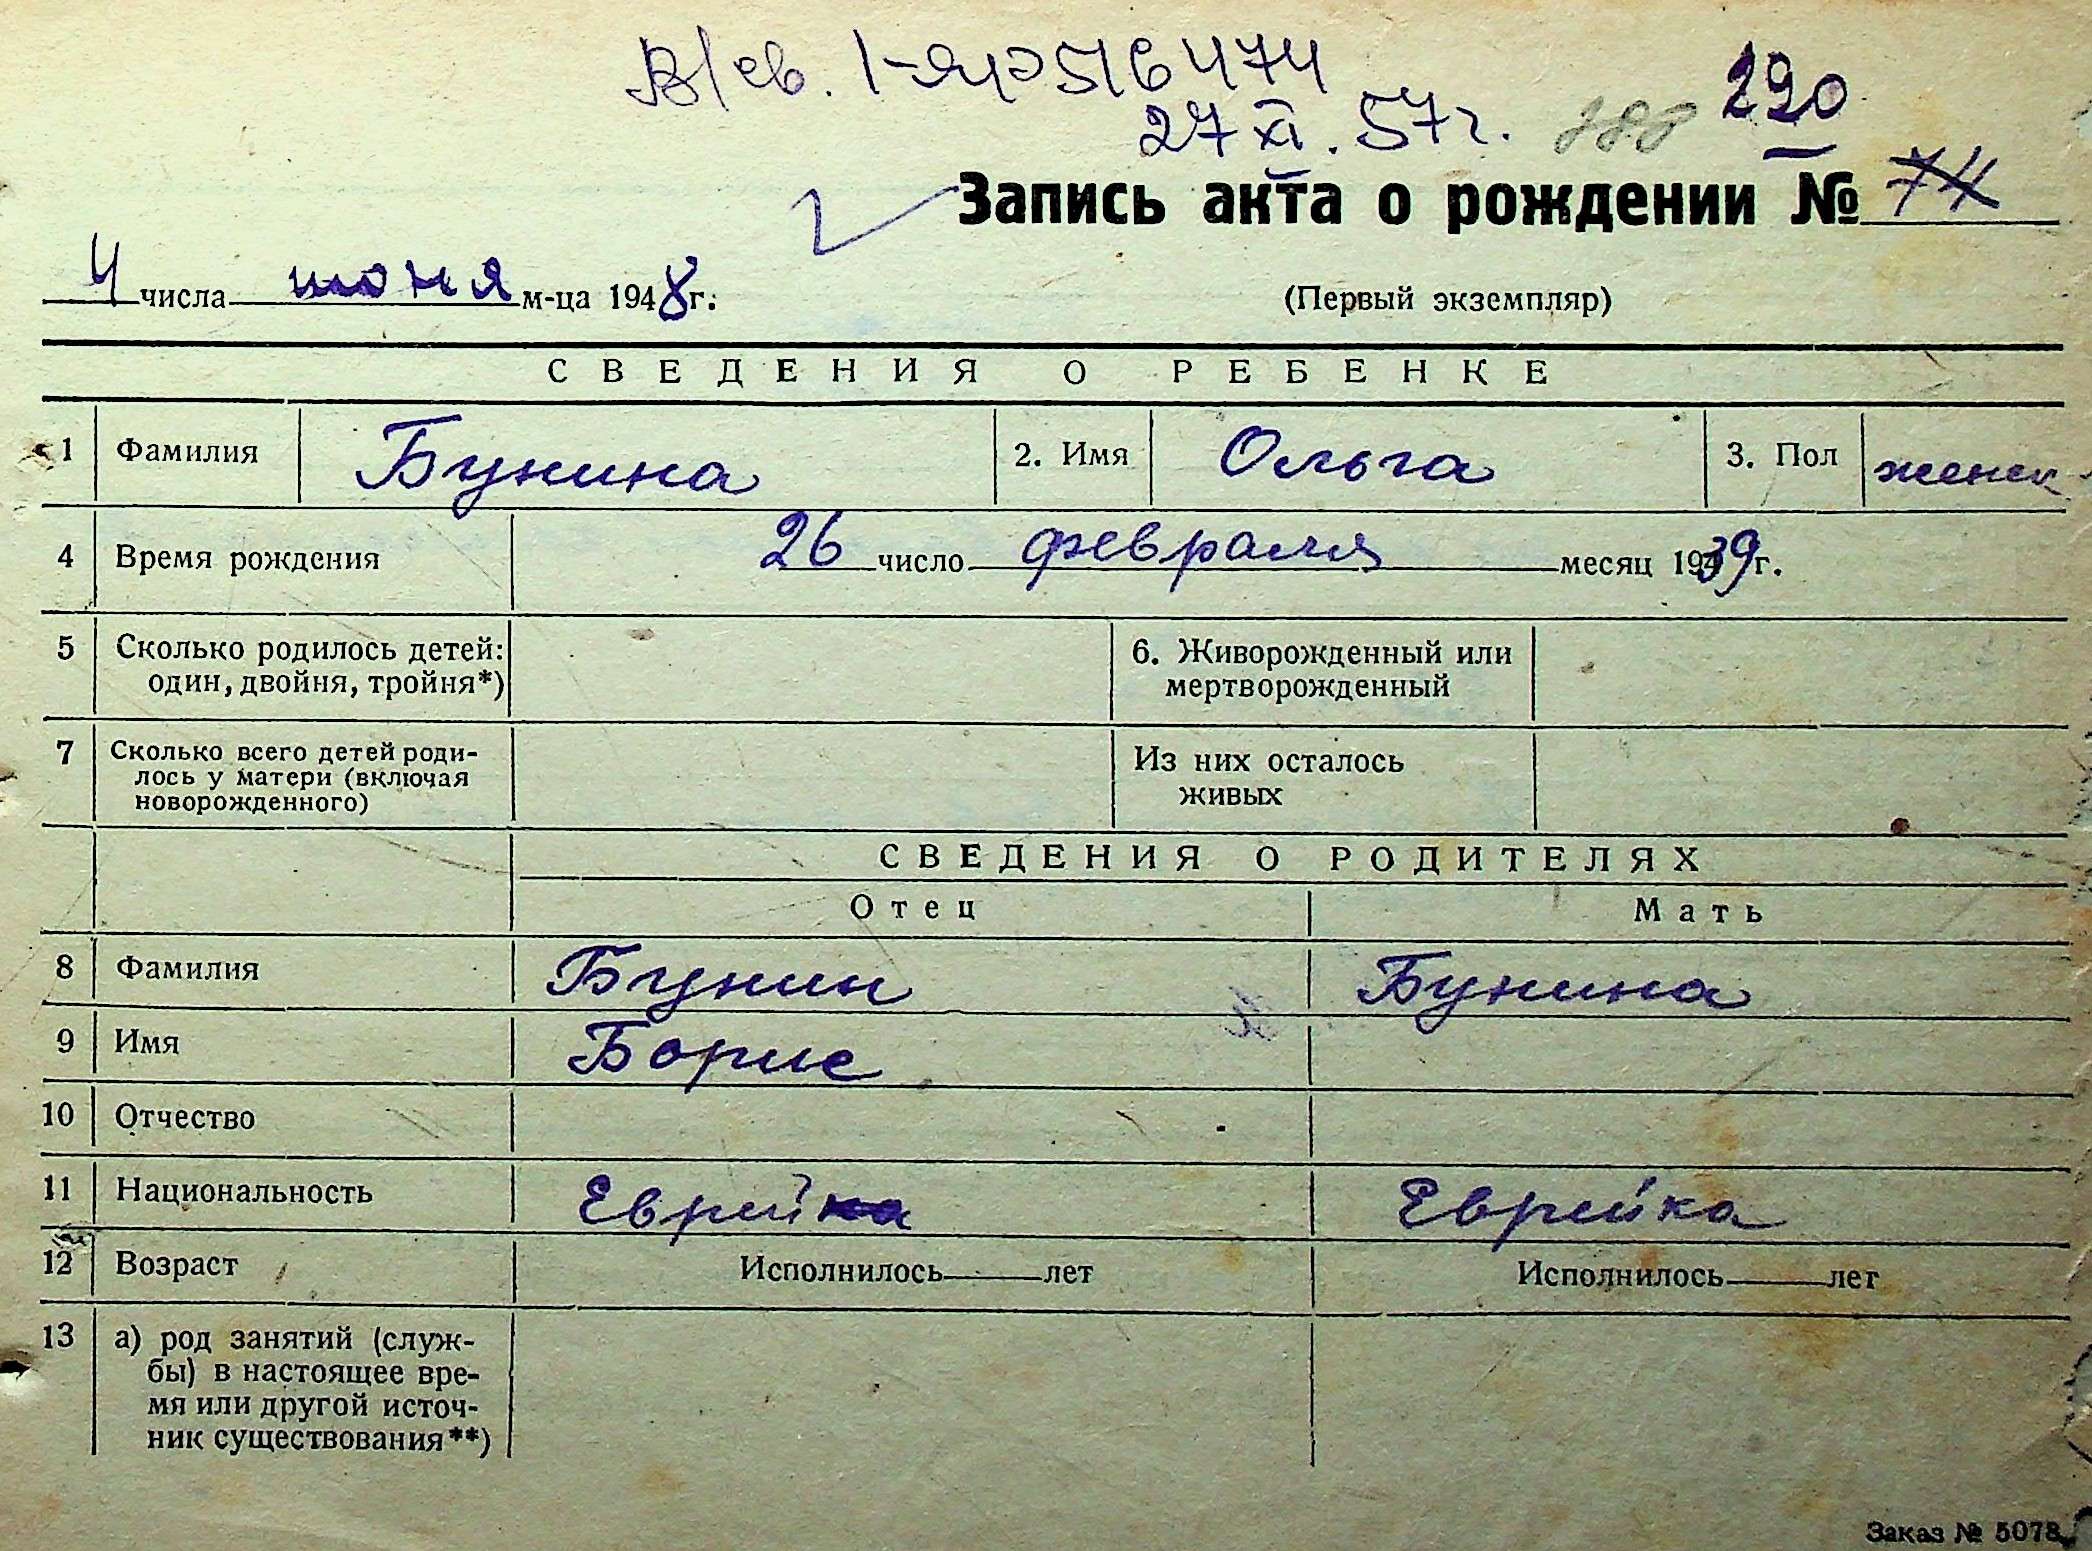 В/св. I-ЯЮ 516474
27 XI. 57 г. 290
Запись акта о рождении № 74
4 числа июня м-ца 1948 г.
(Первый экземпляр)
СВЕДЕНИЯ О РЕБЕНКЕ
1 Фамилия Бунина 2. Имя Ольга 3. Пол женск.
4 Время рождения 26 число февраля месяц 1939 г.
5 Сколько родилось детей: 6. Живорожденный или
один, двойня, тройня*) мертворожденный
7 Сколько всего детей роди- Из них осталось
лось у матери (включая живых
новорожденного)
СВЕДЕНИЯ О РОДИТЕЛЯХ
Отец Мать
8 Фамилия Бунин Бунина
9 Имя Борис
10 Отчество
11 Национальность Еврейка Еврейка
12 Возраст Исполнилось лет Исполнилось лет
13 а) род занятий (служ-
бы) в настоящее вре-
мя или другой источ-
ник существования**)
Заказ № 5078